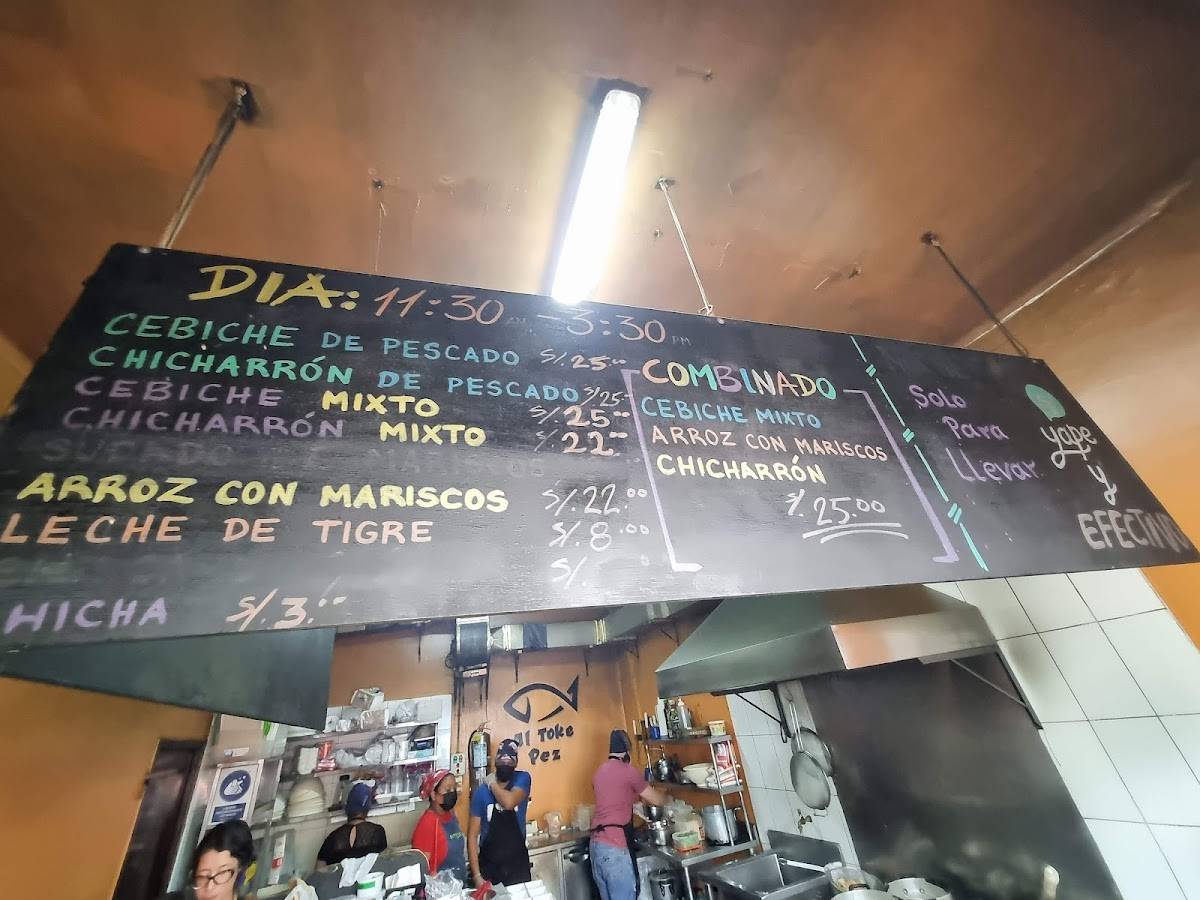 DIA: 11:30 AM - 3:30 PM
CEBICHE DE PESCADO S/.25.00
CHICHARRÓN DE PESCADO S/25-
CEBICHE MIXTO S/.25.00
CHICHARRÓN MIXTO S/.22.00
ARROZ CON MARISCOS S/.22.00
LECHE DE TIGRE S/.8.00
S/.
HICHA S/.3.00
COMBINADO
CEBICHE MIXTO
ARROZ CON MARISCOS
CHICHARRÓN
S/.25.00
Solo
Para
Llevar
yape
y
EFECTIVO
Al Toke
Pez